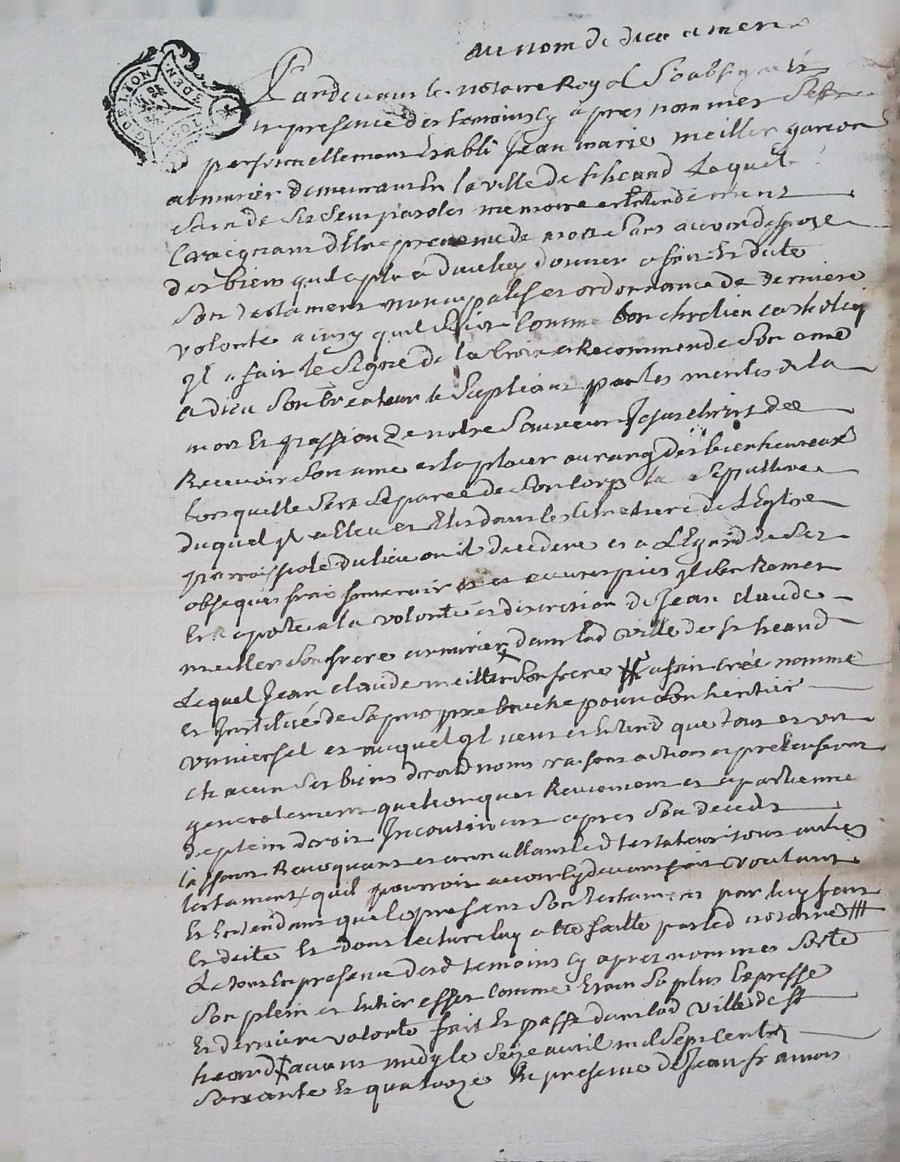 au nom de dieu amen
Pardevant le notaire Royal Soubsigné et
en presence des temoins cy apres nommés S'est
personnellement Etabli Jean marie meiller garcon
armurier demeurant En la ville de st heand Lequel
Sain de Ses Sens paroles memoire et Entendement
Craignant d'Etre prevenu de mort Sans avoir dispozé
des biens quil a plu a dieu luy donner a fait Et dicté
Son testament nuncupatif et ordonnance de derniere
volonté ainsy quil Suit Comme bon chretien catholiq
Il a fait le Signe de la Croix et Recommende Son ame
a dieu Son Createur le Supliant par les merites de la
mort Et passion de notre Sauveur Jesus christ de
Recevoir Son ame et la placer au rang des bienheureux
Lorsquelle Sera Separée de Son Corps la Sepulture
duquel Il a Eleu et Elit dans le Cimetiere de L'Eglise
parroissiale du lieu ou il decedera et a L'Egard de Ses
obseques frais funeraires et œuvres pies Il s'en Remet
Et Raporte a la volonté et discretion de Jean claude
meiller Son frere armurier dans lad ville de st heand
Lequel Jean claude meiller Son frere a fait créé nommé
et Institué de Sa propre bouche pour Son heritier
universel et auquel Il veut et Entend que tous et un
chacun Ses biens droits noms raisons actions et pretensions
generalement quelconques Reviennent et apartienne
de plein droit Incontinent apres Son decedz
Cassant Revoquant et annullant led testateur tous autres
testaments quil pourroit avoir cy devant fait voulant
Et Entendant que le present Son testament par luy fait
et dicté Et dont lecture luy a Eté faitte par led notaire
Le tout En presence desd temoins cy apres nommés Sorte
Son plein et Entier effet comme Etant Sa plus Expresse
Et derniere volonté fait Et passé dans lad ville de st
heand avant midy le Seize avril mil Sept cents
Soixante Et quatorze En presence de Jean francois